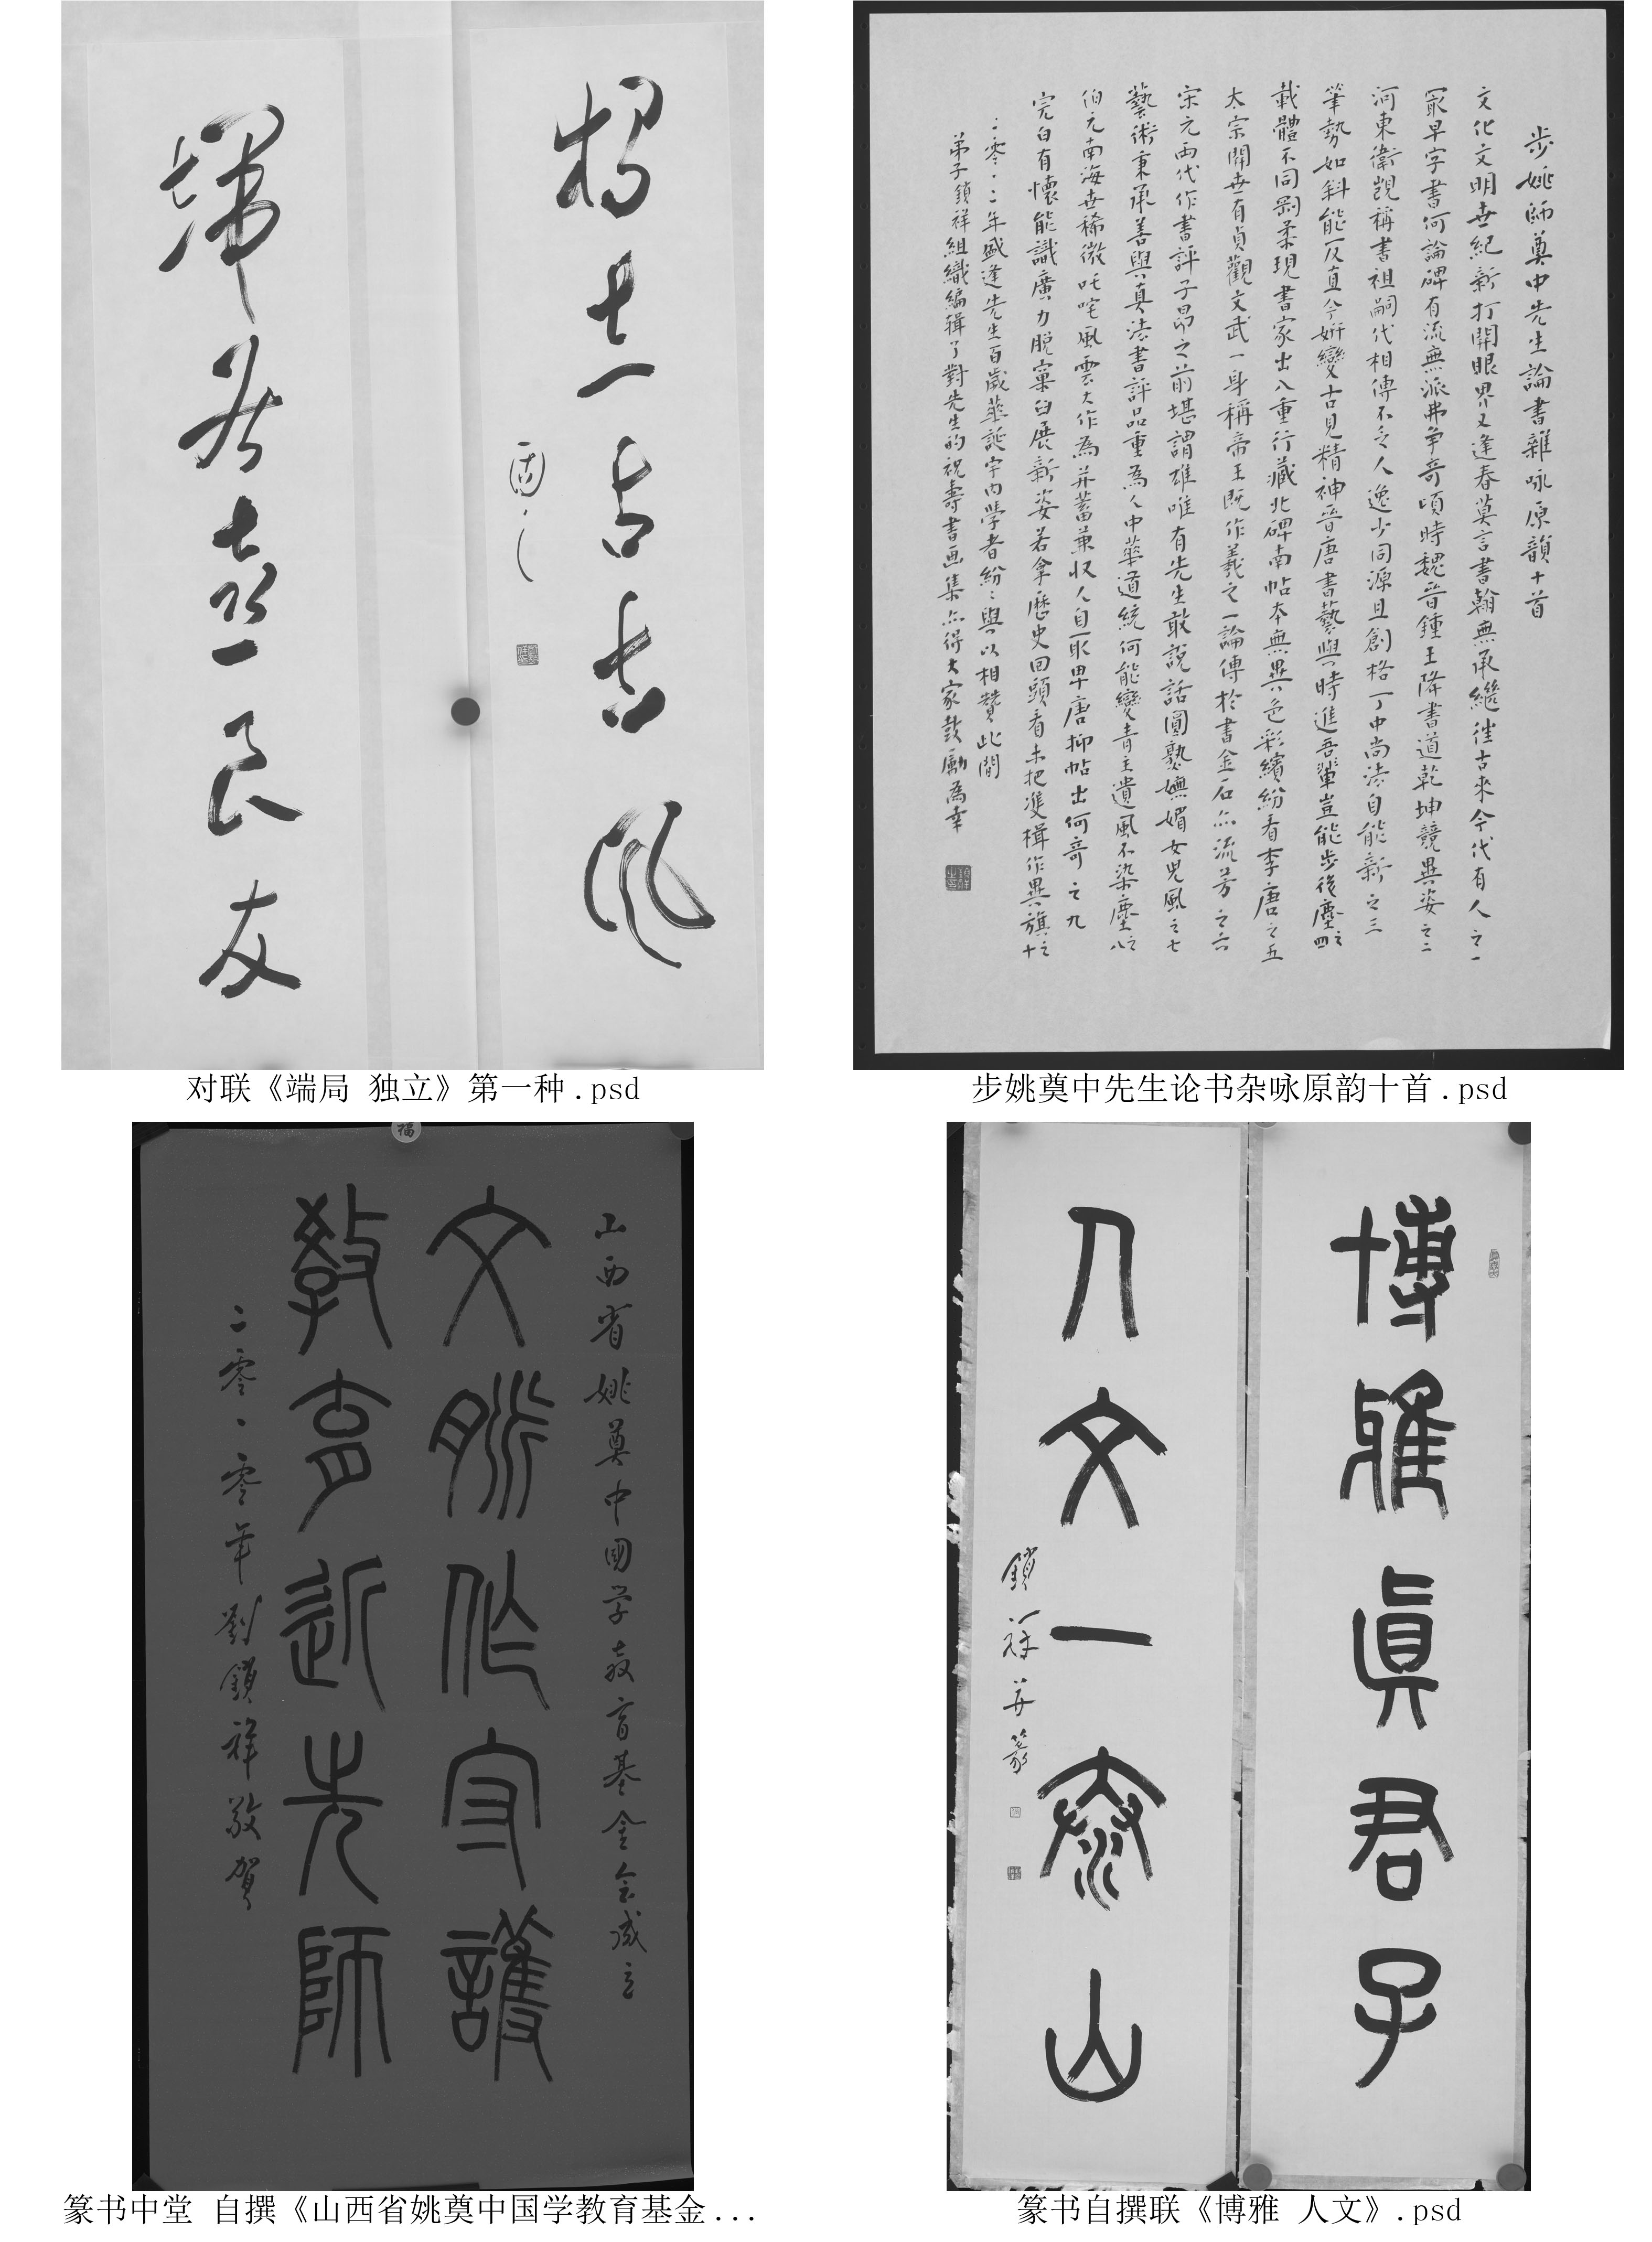 对联《端局 独立》第一种.psd
步姚師奠中先生論書雜咏原韻十首
文化文明世紀新打開眼界又逢春莫言書翰無承繼往古來今代有人之一
冣早字書何論碑有流無派弗争奇頃時魏晉鍾王降書道乾坤競異姿之二
河東衛覬稱書祖嗣代相傳不乏人逸少同源且創格丁中尚法自能新之三
筆勢如斜能反直今妍變古見精神晉唐書藝與時進吾輩豈能步後塵之四
載體不同剛柔現書家出入重行藏北碑南帖本無異色彩繽紛看李唐之五
太宗開世有貞觀文武一身稱帝王既作羲之一論傳於書金石亦流芳之六
宋元兩代作書評子昂之前堪謂雄唯有先生敢說話圓熟嫵媚女兒風之七
藝術秉承善與真法書評品重為人中華道統何能變青主遺風不染塵之八
伯元南海世稀微叱咤風雲大作為并蓄兼收人自取卑唐抑帖出何奇之九
完白有懷能識廣力脱窠臼展新姿若拿歷史回頭看未把準楫作異旗之十
二零一二年盛逢先生百歲華誕宇内學者紛紛與以相贊此間
弟子鎖祥組織編輯了對先生的祝壽書画集亦得大家鼓勵為幸
步姚奠中先生论书杂咏原韵十首.psd
山西省姚奠中國学教育基金会成立
文脈作守護
教育近先師
二零一零年劉鎖祥敬賀
篆书中堂 自撰《山西省姚奠中国学教育基金...
博雅真君子
人文一泰山
鎖祥并篆
篆书自撰联《博雅 人文》.psd